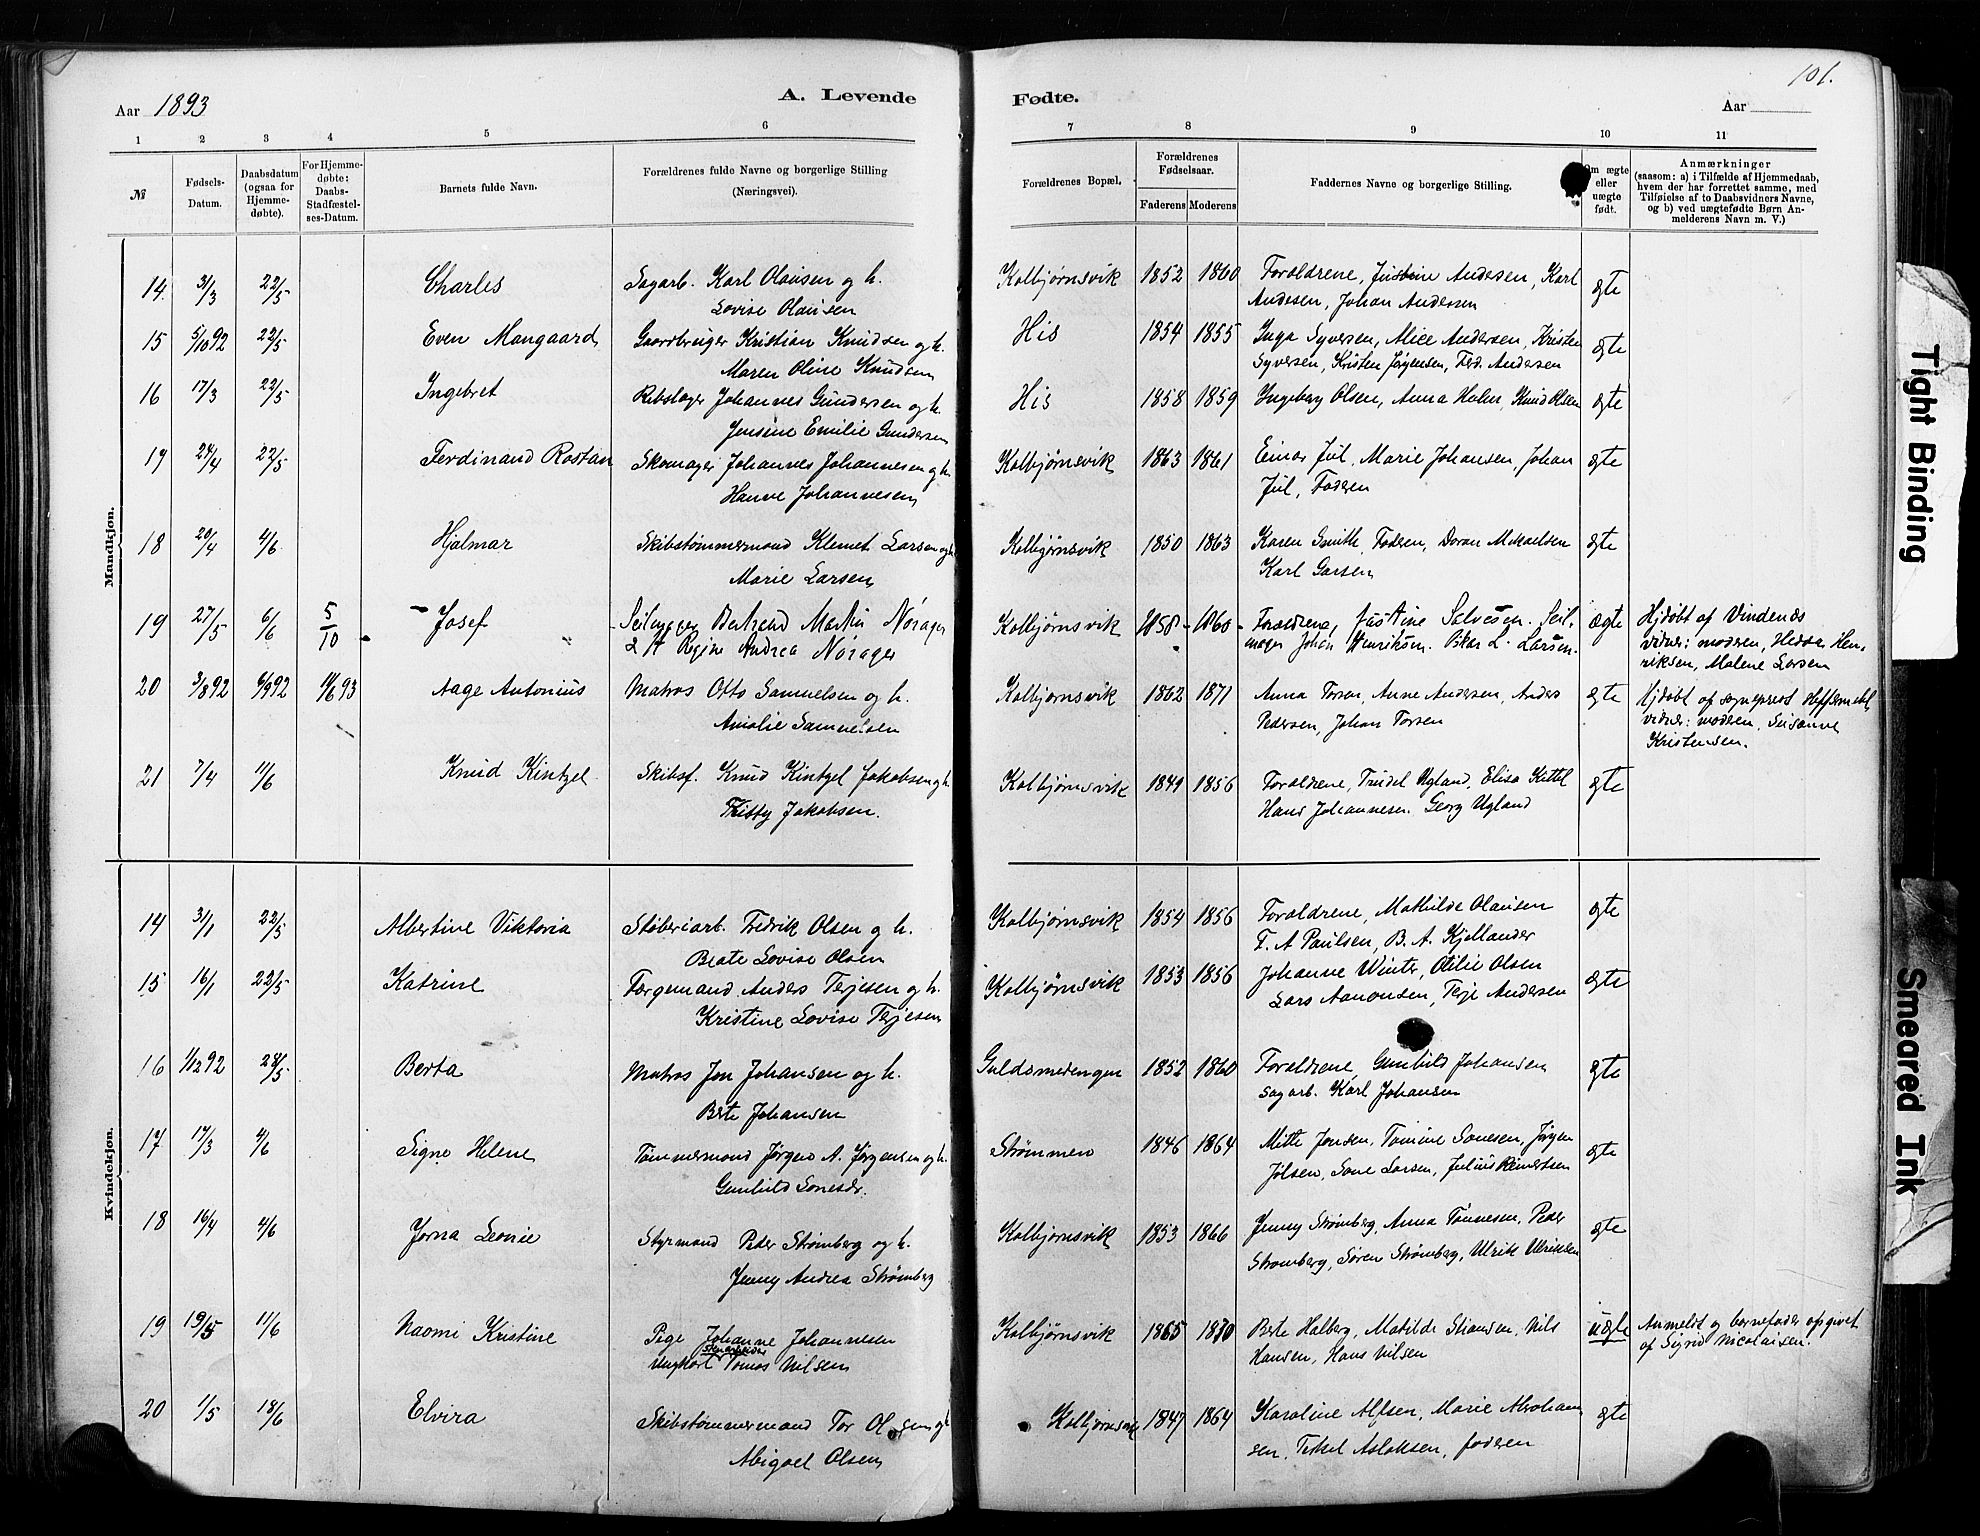 101.
Aar 1893 A. Levende Fødte. Aar
1 2 3 4 5 6 7 8 9 10 11
№
Fødsels-
Datum.
Daabsdatum
(ogsaa for
Hjemme-
døbte).
For Hjemme-
døbte:
Daabs-
Stadfæstel-
ses-Datum.
Barnets fulde Navn.
Forældrenes fulde Navne og borgerlige Stilling
(Næringsvei).
Forældrenes Bopæl.
Forældrenes
Fødselsaar.
Faderens Moderens
Faddernes Navne og borgerlige Stilling.
Om ægte
eller
uægte
født.
Anmærkninger
(saasom: a) i Tilfælde af Hjemmedaab,
hvem der har forrettet samme, med
Tilføielse af to Daabsvidners Navne,
og b) ved uægtefødte Børn An-
melderens Navn m. V.)
Mandkjøn.
14 31/3 22/5 Charles Sagarb. Karl Olausen og h. Kolbjørnsvik 1852 1860 Foræeldrene, Justine Andersen, Karl ægte
Lovise Olausen Andersen, Johan Andersen
15 5/10 92 22/5 Even Mangaard Gaardbruger Kristian Knudsen og h. His 1854 1855 Inga Syversen, Alice Andersen, Kristen ægte
Maren Oline Knudsen Syversen, Kristen Jørgensen, Ferd. Andersen
16 17/3 22/5 Ingebret Rebslager Johannes Gundersen og h. His 1858 1859 Ingeborg Olsen, Anna Holm, Knud Olsen ægte
Jensine Emilie Gundersen
19 24/4 22/5 Ferdinand Rostan Skomager Johannes Johannesen og h. Kolbjørnsvik 1863 1861 Einar Jul, Marie Johansen, Johan ægte
Hanne Johannesen Jul, Faderen
18 20/4 4/6 Hjalmar Skibstømmermand Klemet Larsen og h. Kolbjørnsvik 1850 1863 Karen Smith, Faderen, Doran Mikaelsen ægte
Marie Larsen Karl Larsen
19 27/5 6/6 5/10 Josef Martin Nórager Kolbjørnsvik 1858 1860 Forældrene, Justine Selvesen. Seil- ægte Hjdøbt af Vindenæs
& H Regine Andrea Nórager mager Johan Henriksen. Oskar L. Larsen. vidner: moderen, Hedda Hen-
riksen, Malene Larsen
20 3/8 92 6/9 92 11/6 93 Aage Antonius Matros Otto Samuelsen og h. Kolbjørnsvik 1862 1871 Anna Torsen, Anne Andersen, Anders ægte Hjdøbt af sognepræst
Amalie Samuelsen Pedersen, Johan Torsen vidner: moderen, Susanne
Kristensen.
21 7/4 11/6 Knud Kintzel Skibsf. Knud Kintzel Jakobsen og h. Kolbjørnsvik 1849 1856 Forældrene, Trudel Ugland, Elisa Kittel ægte
Kitty Jakobsen. Hans Johannesen. Georg Ugland
Kvindekjøn.
14 31/1 22/5 Albertine Viktoria Støberiarb. Fredrik Olsen og h. Kolbjørnsvik 1854 1856 Forældrene, Mathilde Olausen ægte
Beate Lovise Olsen F. A Paulsen, B. A. Kjellander
15 16/1 22/5 Katrine Færgemand Anders Terjesen og h. Kolbjørnsvik 1853 1856 Johanne Winter, Otilie Olsen ægte
Kristine Lovise Terjesen Lars Aanonsen, Terje Andersen
16 1/12 92 28/5 Berta Matros Jon Johansen og h. Guldsmedengen 1852 1860 Forældrene, Gunhild Johansen ægte
Berte Johansen Sagarb. Karl Johansen
17 17/3 4/6 Signe Helene Tømmermand Jörgen A. Jörgensen og h. Strømmen 1846 1864 Mitte Jensen, Tomine Sonesen, Jörgen ægte
Gunhild Sonesdr. Jølsen, Sone Larsen, Julius Reinertsen
18 16/4 4/6 Jorna Leonie Styrmand Peder Strømberg og h. Kolbjørnsvik 1853 1866 Jenny Strømberg, Anna Tønnesen, Peder ægte
Jenny Andrea Strømberg Stromberg, Søren Strømberg, Ulrik Ulriksen
19 19/5 11/6 Naomi Kristine Pige Johanne Johannesen Kolbjørnsvik 1865 1870 Berte Halberg, Matilde Stiansen, Nils uægte Anmeldt og barnefader opgivet
Ungkarl Tomas Nilsen Hansen, Hans Nilsen af Sigrid Nicolaisen.
20 1/5 18/6 Elvira Skibstømmermand Tor Olsen og h. Kolbjørnsvik 1847 1864 Karoline Alfsen, Marie Abraham ægte
Abigael Olsen sen, Terkel Aslaksen, faderen
Tight Binding
Smeared Ink